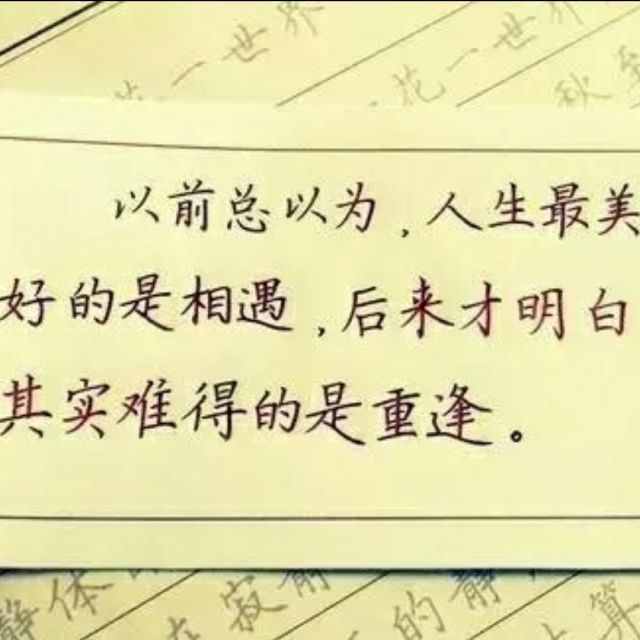 花一世界
花一世界
秋至
以前总以为,人生最美
好的是相遇,后来才明白
其实难得的是重逢。
静体
寂静
的静
算